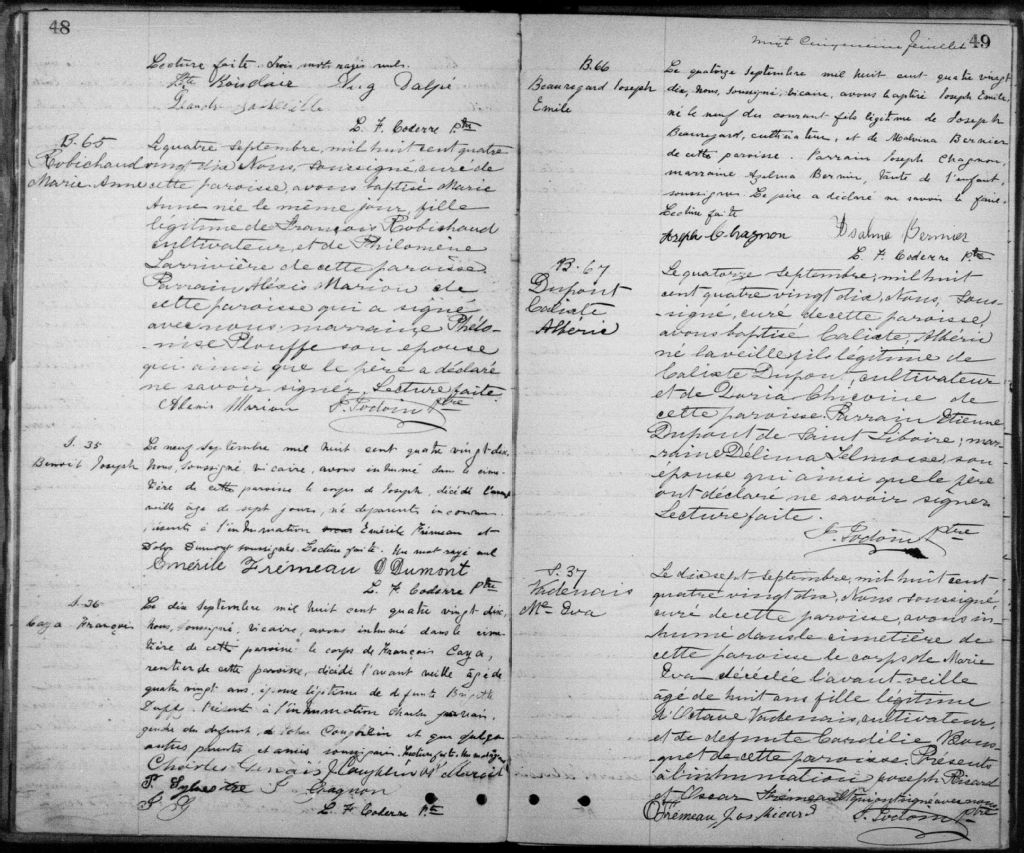 48
Lecture faite. Trois mots rayés nuls.
Bte Boisclair Aug Dalpé
L. F. Coderre Ptre
B. 65
Robichaud
Marie Anne
Le quatre septembre, mil huit cent quatre
vingt dix Nous, soussigné, curé de
cette paroisse, avons baptisé Marie
Anne née le même jour, fille
légitime de François Robichaud
cultivateur, et de Philomène
Larrivière de cette paroisse.
Parrain Alexis Marion de
cette paroisse qui a signé
avec nous, marraine Phélo-
nise Plouffe son épouse
qui ainsi que le père a déclaré
ne savoir signer. Lecture faite.
Alexis Marion P. Jodoin Ptre
S. 35
Benoit Joseph
Le neuf septembre mil huit cent quatre vingt dix,
Nous, soussigné, vicaire, avons inhumé dans le cime-
tière de cette paroisse le corps de Joseph, décédé l'avant
veille âgé de sept jours, né de parents inconnus.
présents à l'inhumation Emérile Frémeau et
Dumont soussignés. Lecture faite. Un mot rayé nul
Emérile Frémeau D Dumont
L. F. Coderre Ptre
S. 36
Caya François
Le dix septembre mil huit cent quatre vingt dix,
Nous, soussigné, vicaire, avons inhumé dans le cime-
tière de cette paroisse le corps de François Caya,
rentier de cette paroisse, décédé l'avant veille âgé de
quatre vingt ans, époux légitime de défunte Brigitte
Duffy. Présent à l'inhumation Charles
gendre du défunt, de John Coughlin et que quelques
autres parents et amis soussignés. Lecture faite.
Charles J Coughlin
P. Sylvestre Gagnon
L. F. Coderre Ptre
49
vingt cinquième feuillet
B. 66
Beauregard Joseph
Emile
Le quatorze septembre mil huit cent quatre vingt
dix, Nous, soussigné, vicaire, avons baptisé Joseph Emile,
né le neuf du courant fils légitime de Joseph
Beauregard, cultivateur, et de Malvina Bernier
de cette paroisse. Parrain Joseph Chagnon,
marraine Azelma Bernier, tante de l'enfant,
soussignés. Le père a déclaré ne savoir le faire.
Lecture faite
Joseph Chagnon Bernier
L. F. Coderre Ptre
B. 67
Dupont
Calixte
Albéric
Le quatorze septembre, mil huit
cent quatre vingt dix, Nous, sous-
signé, curé de cette paroisse,
avons baptisé Calixte, Albéric
né la veille, fils légitime de
Calixte Dupont, cultivateur
et de Doria Chicoine de
cette paroisse. Parrain Etienne
Dupont de Saint Liboire; mar-
raine Délima son
épouse qui ainsi que le père
ont déclaré ne savoir signer
Lecture faite.
P. Jodoin Ptre
S. 37
Vadenais
Mie Eva
Le dix sept septembre, mil huit cent
quatre vingt dix, Nous soussigné
curé de cette paroisse, avons in-
humé dans le cimetière de
cette paroisse le corps de Marie
Eva décédée l'avant veille
âgée de huit ans fille légitime
d'Octave Vadenais, cultivateur,
et de défunte Cordélie Bous-
quet de cette paroisse. Présents
à l'inhumation Joseph Ricard
et Oscar Frémeau qui ont signé avec nous
O Frémeau, Jos Ricard P. Jodoin Ptre